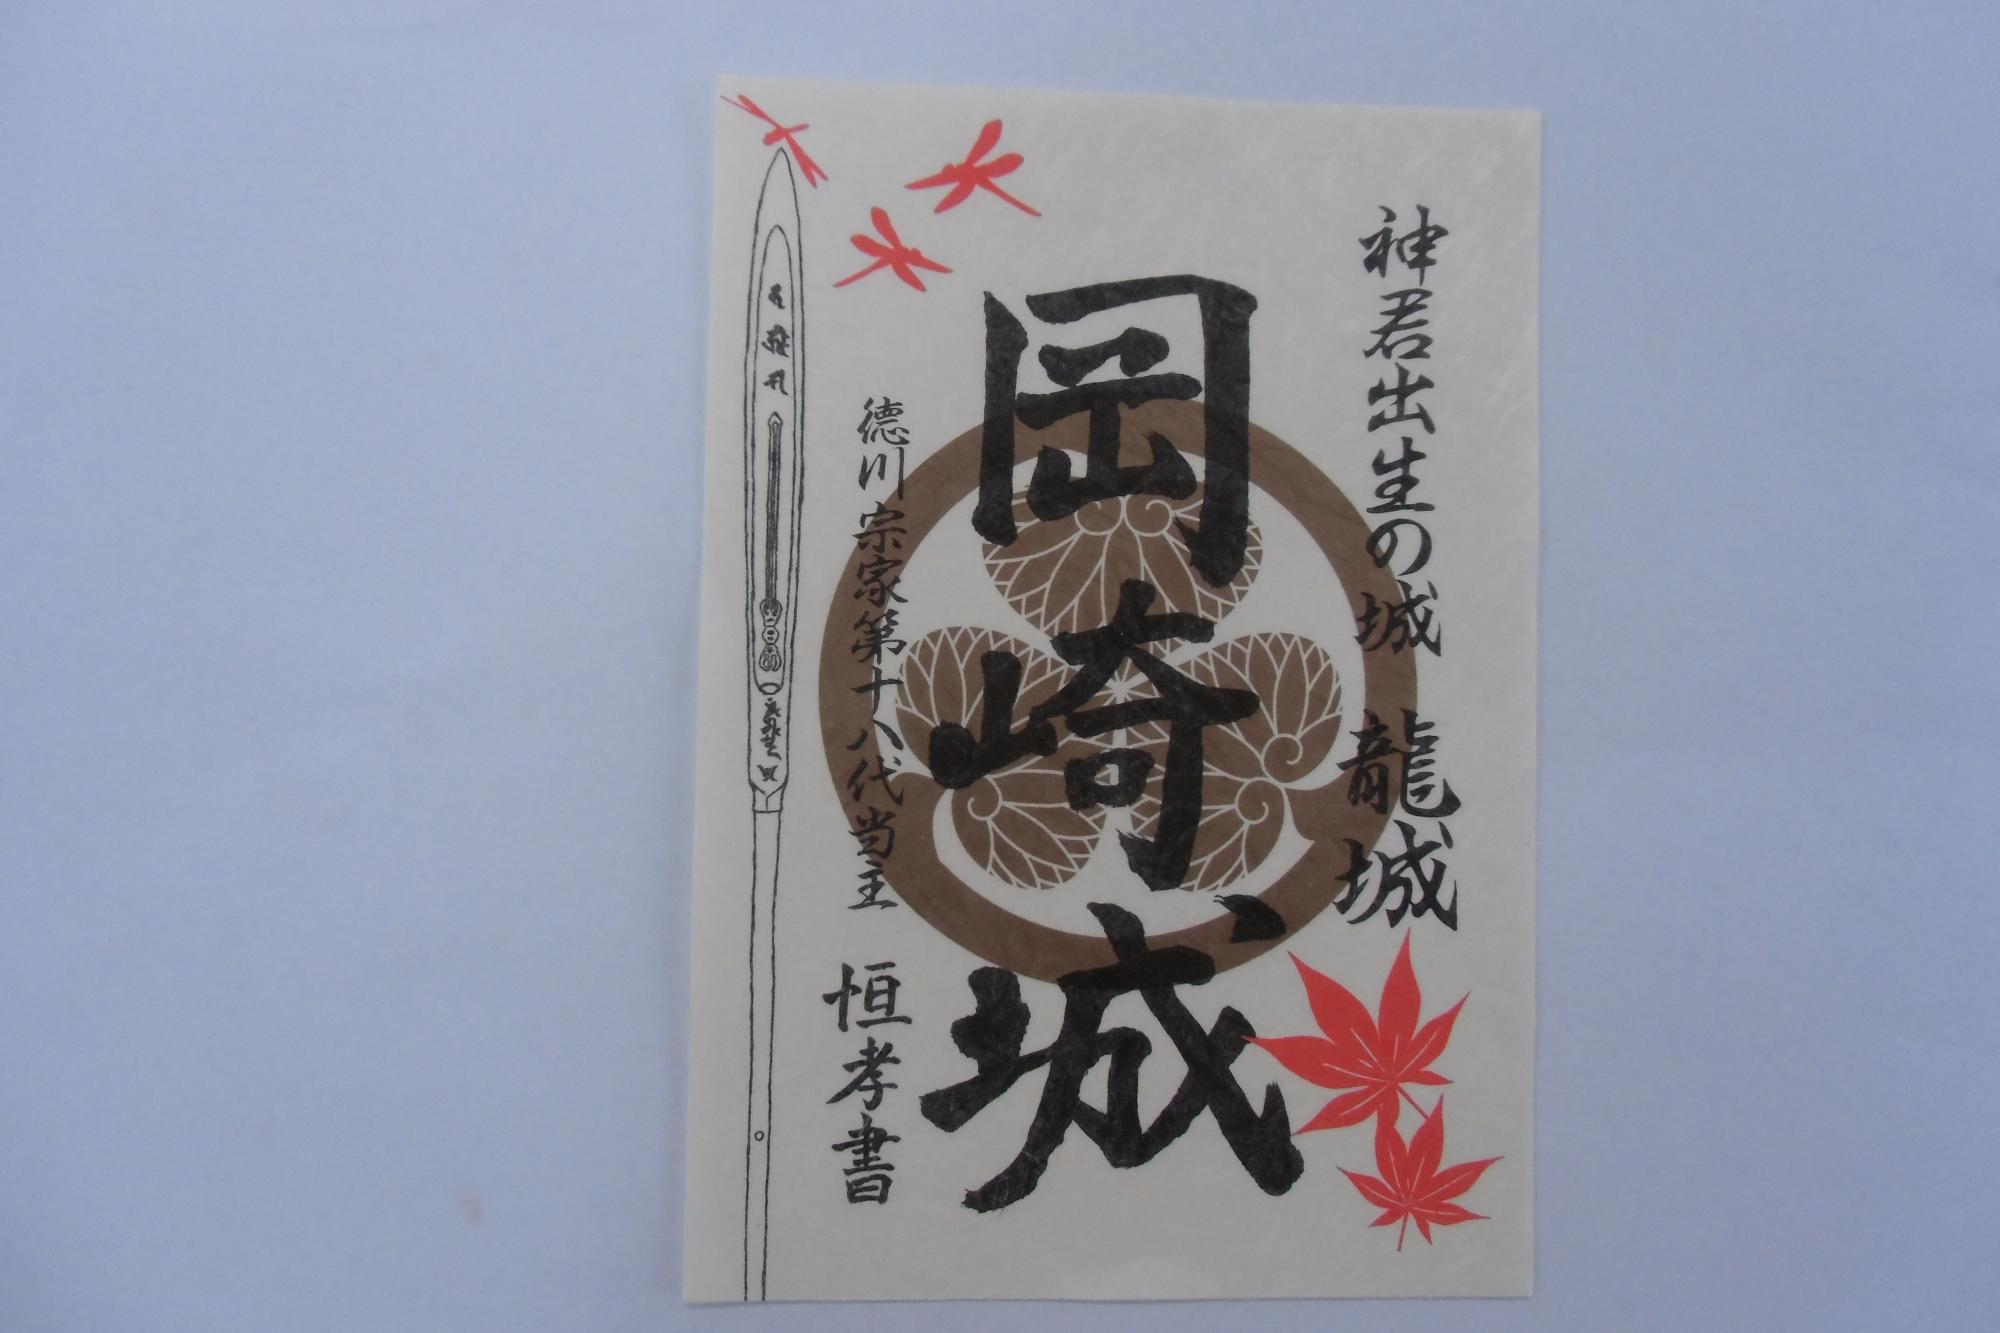 神君出生の城　龍城
岡崎城
徳川宗家第十八代当主　恒孝書